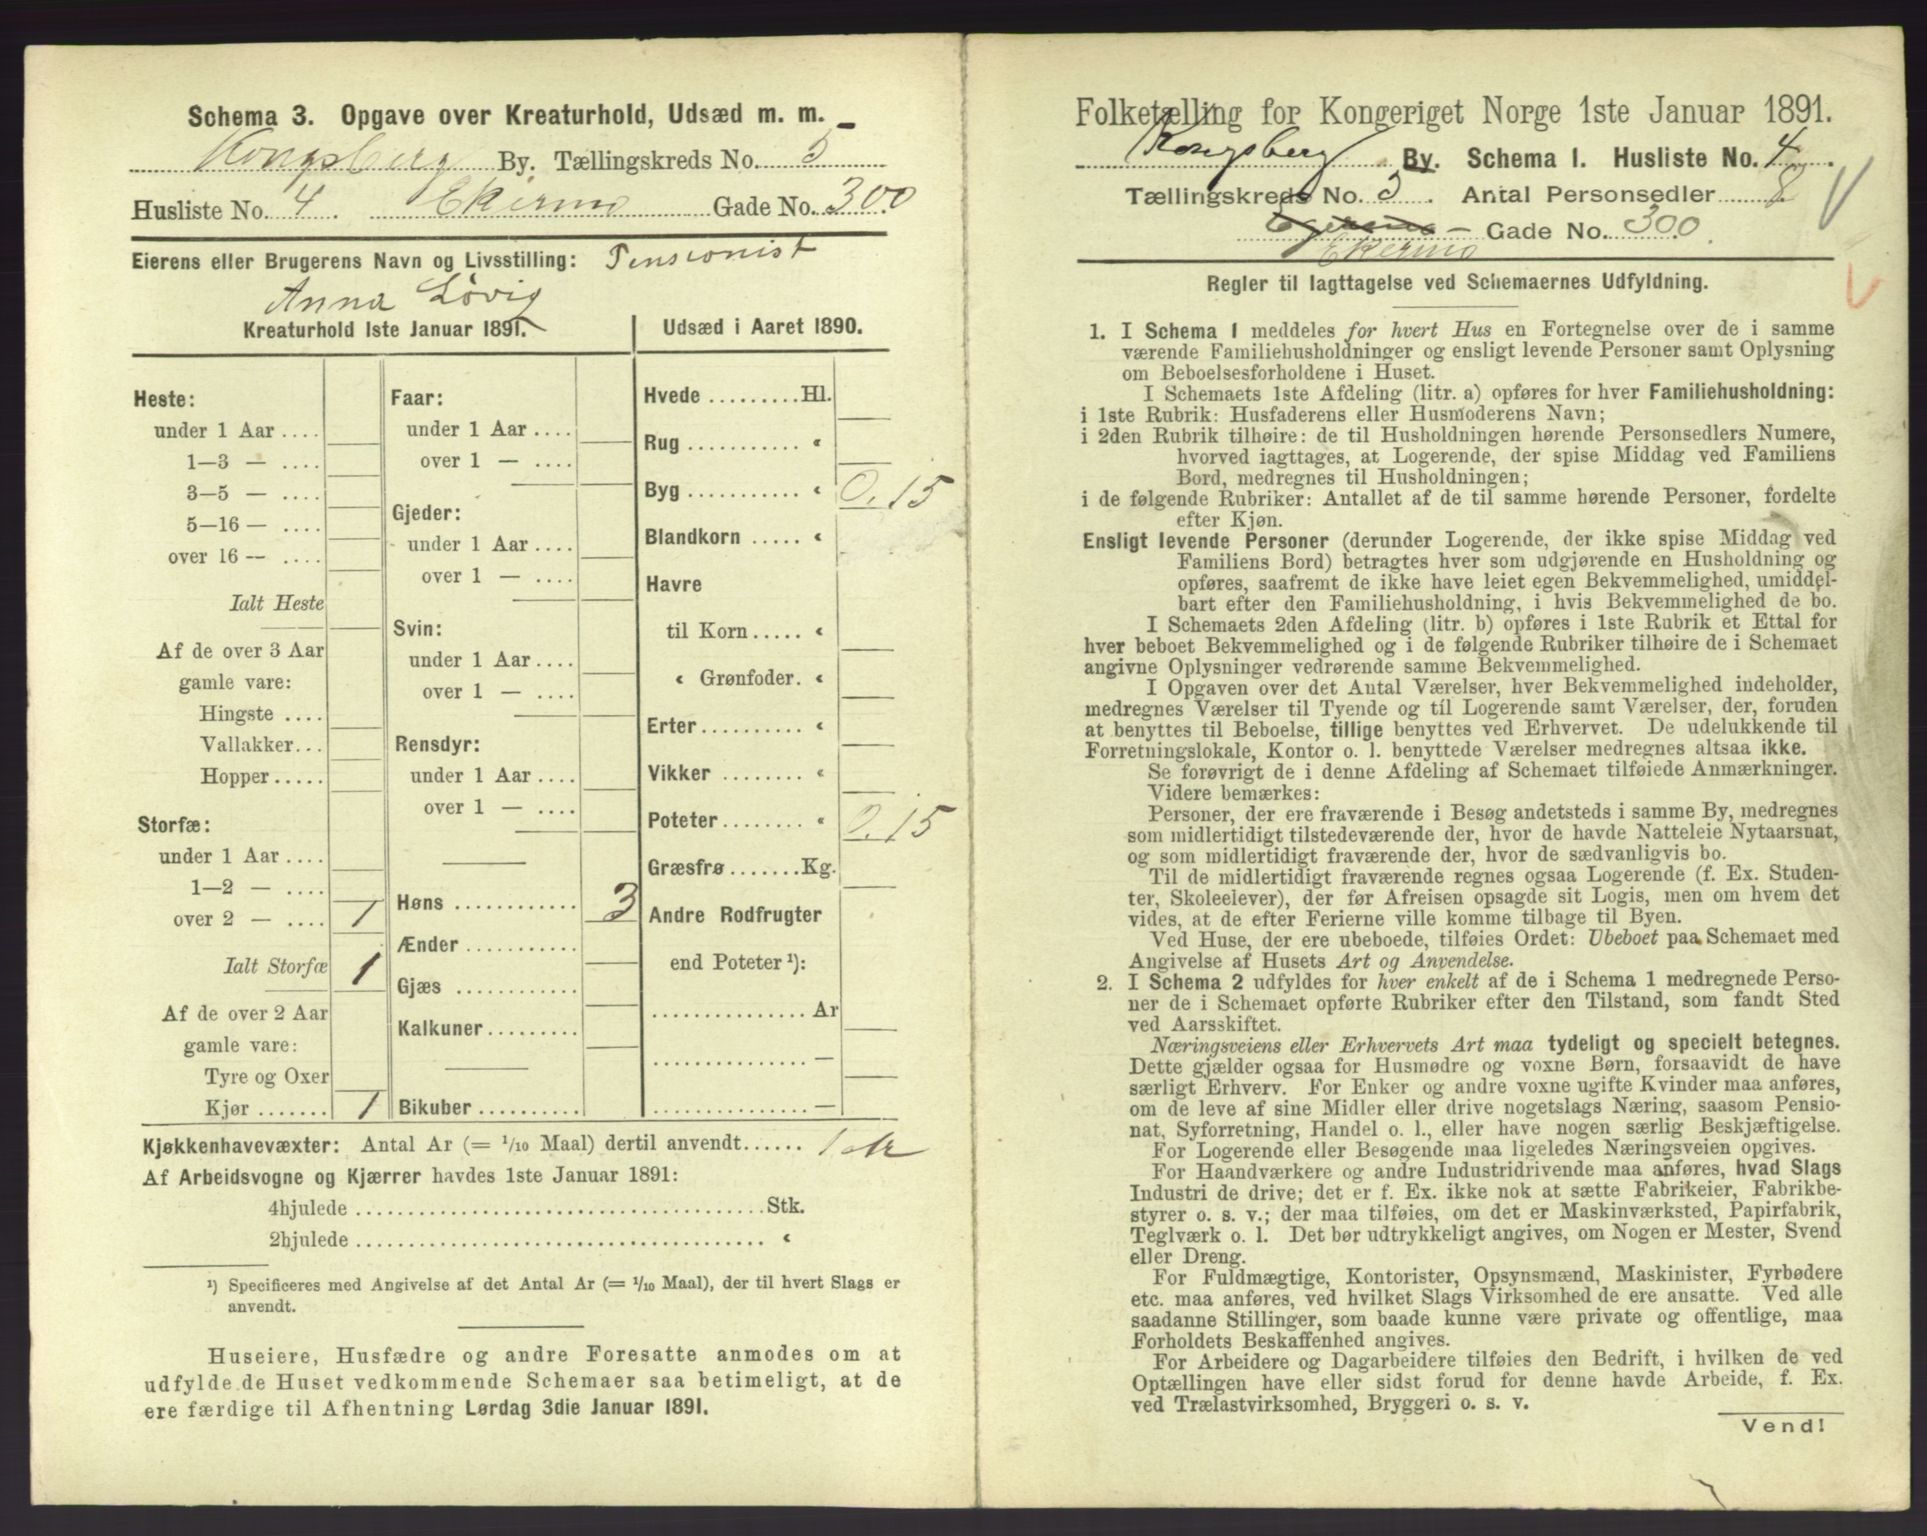 Schema 3. Opgave over Kreaturhold, Udsæd m. m.
Kongsberg By. Tællingskreds No. 5
Husliste No. 4. Ekermo Gade No. 300.
Eierens eller Brugerens Navn og Livsstilling: Pensionist
Anna Løvig
Kreaturhold 1ste Januar 1891.
Heste:
under 1 Aar ....
1—3 — ....
3—5 — ....
5—16 — ....
over 16 — ....
Ialt Heste
Af de over 3 Aar
gamle vare:
Hingste ....
Vallakker...
Hopper.....
Storfæ:
under 1 Aar ....
1—2 — ....
over 2 — .... 1
Ialt Storfæ 1
Af de over 2 Aar
gamle vare:
Tyre og Oxer
Kjør ....... 1
Faar:
under 1 Aar ....
over 1 — ....
Gjeder:
under 1 Aar ....
over 1 — ....
Svin:
under 1 Aar ....
over 1 — ....
Rensdyr:
under 1 Aar ....
over 1 — ....
Høns ............ 3
Ænder ...........
Gjæs ............
Kalkuner.........
Bikuber..........
Udsæd i Aaret 1890.
Hvede .........Hl.
Rug ........... «
Byg ........... « 0.15
Blandkorn ..... «
Havre
til Korn..... «
« Grønfoder. «
Erter.......... «
Vikker ........ «
Poteter........ « 0.15
Græsfrø.......Kg.
Andre Rodfrugter
end Poteter ¹):
............... Ar
............... —
............... —
Kjøkkenhavevæxter: Antal Ar (= 1/10 Maal) dertil anvendt...... 1 ar
Af Arbeidsvogne og Kjærrer havdes 1ste Januar 1891:
4hjulede .......................................Stk.
2hjulede ....................................... «
¹) Specificeres med Angivelse af det Antal Ar (= 1/10 Maal), der til hvert Slags er
anvendt.
Huseiere, Husfædre og andre Foresatte anmodes om at
udfylde de Huset vedkommende Schemaer saa betimeligt, at de
ere færdige til Afhentning Lørdag 3die Januar 1891.
Folketælling for Kongeriget Norge 1ste Januar 1891.
Kongsberg By. Schema 1. Husliste No. 4.
Tællingskreds No. 5. Antal Personsedler 8.
— Gade No. 300.
Ekermo
Regler til Iagttagelse ved Schemaernes Udfyldning.
1. I Schema 1 meddeles for hvert Hus en Fortegnelse over de i samme
værende Familiehusholdninger og ensligt levende Personer samt Oplysning
om Beboelsesforholdene i Huset.
I Schemaets 1ste Afdeling (litr. a) opføres for hver Familiehusholdning:
i 1ste Rubrik: Husfaderens eller Husmoderens Navn;
i 2den Rubrik tilhøire: de til Husholdningen hørende Personsedlers Numere,
hvorved iagttages, at Logerende, der spise Middag ved Familiens
Bord, medregnes til Husholdningen;
i de følgende Rubriker: Antallet af de til samme hørende Personer, fordelte
efter Kjøn.
Ensligt levende Personer (derunder Logerende, der ikke spise Middag ved
Familiens Bord) betragtes hver som udgjørende en Husholdning og
opføres, saafremt de ikke have leiet egen Bekvemmelighed, umiddel-
bart efter den Familiehusholdning, i hvis Bekvemmelighed de bo.
I Schemaets 2den Afdeling (litr. b) opføres i 1ste Rubrik et Ettal for
hver beboet Bekvemmelighed og i de følgende Rubriker tilhøire de i Schemaet
angivne Oplysninger vedrørende samme Bekvemmelighed.
I Opgaven over det Antal Værelser, hver Bekvemmelighed indeholder,
medregnes Værelser til Tyende og til Logerende samt Værelser, der, foruden
at benyttes til Beboelse, tillige benyttes ved Erhvervet. De udelukkende til
Forretningslokale, Kontor o. l. benyttede Værelser medregnes altsaa ikke.
Se forøvrigt de i denne Afdeling af Schemaet tilføiede Anmærkninger.
Videre bemærkes:
Personer, der ere fraværende i Besøg andetsteds i samme By, medregnes
som midlertidigt tilstedeværende der, hvor de havde Natteleie Nytaarsnat,
og som midlertidigt fraværende der, hvor de sædvanligvis bo.
Til de midlertidigt fraværende regnes ogsaa Logerende (f. Ex. Studen-
ter, Skoleelever), der før Afreisen opsagde sit Logis, men om hvem det
vides, at de efter Ferierne ville komme tilbage til Byen.
Ved Huse, der ere ubeboede, tilføies Ordet: Ubeboet paa Schemaet med
Angivelse af Husets Art og Anvendelse.
2. I Schema 2 udfyldes for hver enkelt af de i Schema 1 medregnede Perso-
ner de i Schemaet opførte Rubriker efter den Tilstand, som fandt Sted
ved Aarsskiftet.
Næringsveiens eller Erhvervets Art maa tydeligt og specielt betegnes.
Dette gjælder ogsaa for Husmødre og voxne Børn, forsaavidt de have
særligt Erhverv. For Enker og andre voxne ugifte Kvinder maa anføres,
om de leve af sine Midler eller drive nogetslags Næring, saasom Pensio-
nat, Syforretning, Handel o. l., eller have nogen særlig Beskjæftigelse.
For Logerende eller Besøgende maa ligeledes Næringsveien opgives.
For Haandværkere og andre Industridrivende maa anføres, hvad Slags
Industri de drive; det er f. Ex. ikke nok at sætte Fabrikeier, Fabrikbe-
styrer o. s. v.; der maa tilføies, om det er Maskinværksted, Papirfabrik,
Teglværk o. l. Det bør udtrykkeligt angives, om Nogen er Mester, Svend
eller Dreng.
For Fuldmægtige, Kontorister, Opsynsmænd, Maskinister, Fyrbødere
etc. maa anføres, ved hvilket Slags Virksomhed de ere ansatte. Ved alle
saadanne Stillinger, som baade kunne være private og offentlige, maa
Forholdets Beskaffenhed angives.
For Arbeidere og Dagarbeidere tilføies den Bedrift, i hvilken de ved
Optællingen have eller sidst forud for denne havde Arbeide, f. Ex.
ved Trælastvirksomhed, Bryggeri o. s. v.
Vend!